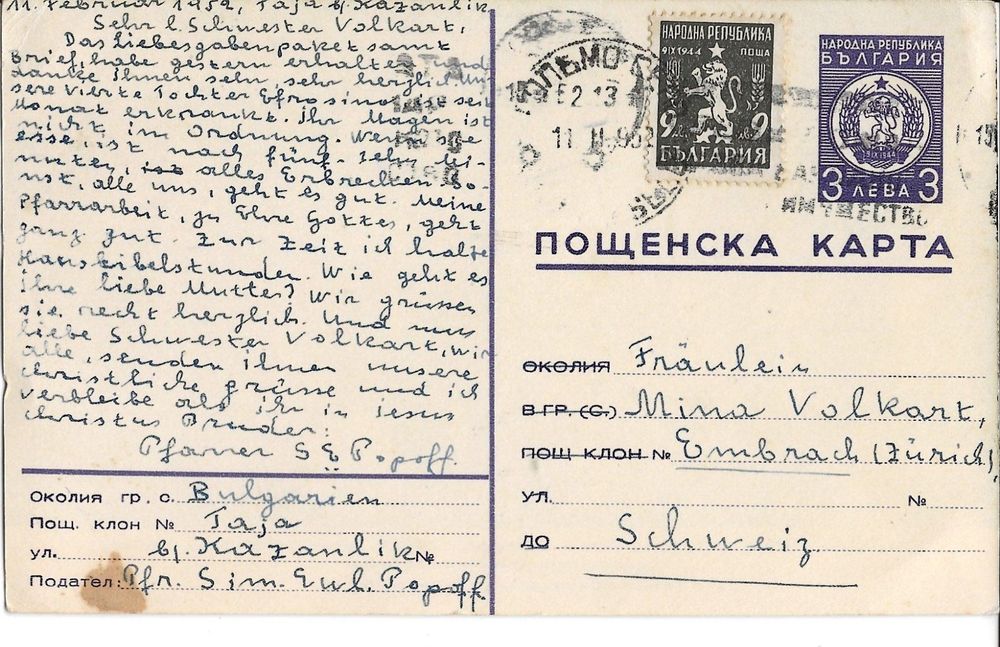 11. Februar 1952, Taja bj. Kazanlik
Sehr l. Schwester Volkart,
Das Liebesgabenpaket samt
Brief, habe gestern erhalten und
danke Ihnen sehr, sehr herzlich. Un-
sere vierte Tochter Efrosina ist seit
Monat erkrankt. Ihr Magen ist
nicht im Ordnung. Wenn sie
esse, ist nach fünf-zehn Mi-
nuten, alles Erbrechen. So-
nst, alle uns, geht es gut. Meine
Pfarrarbeit, zu Ehre Gottes, geht
ganz gut. Zur Zeit ich halte
Hausbibelstunden. Wie geht es
Ihre liebe Mutter? Wir grüssen
sie recht herzlich. Und nun
liebe Schwester Volkart, wir
alle, senden ihnen unsere
christliche grüsse und ich
verbleibe als ihr in jesus
christus Bruder:
Pfarrer S E Popoff.
ОКОЛИЯ ГР. С. Bulgarien
ПОЩ. КЛОН № Taja
УЛ. bj. Kazanlik №
Подател: Pfr. Sim. Ewl. Popoff.
НАРОДНА РЕПУБЛИКА
9 IX 1944 ПОЩА
9 ЛВ. 9
БЪЛГАРИЯ
НАРОДНА РЕПУБЛИКА
БЪЛГАРИЯ
9 IX 1944
3 ЛЕВА 3
ИМУЩЕСТВО
ПОЩЕНСКА КАРТА
ОКОЛИЯ Fräulein
В ГР. (С.) Mina Volkart,
ПОЩ КЛОН № Embrach (Zürich),
УЛ. №
ДО Schweiz